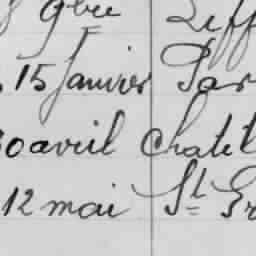 9bre
15 Janvier Par
30 avril Chatel
12 mai St Gr